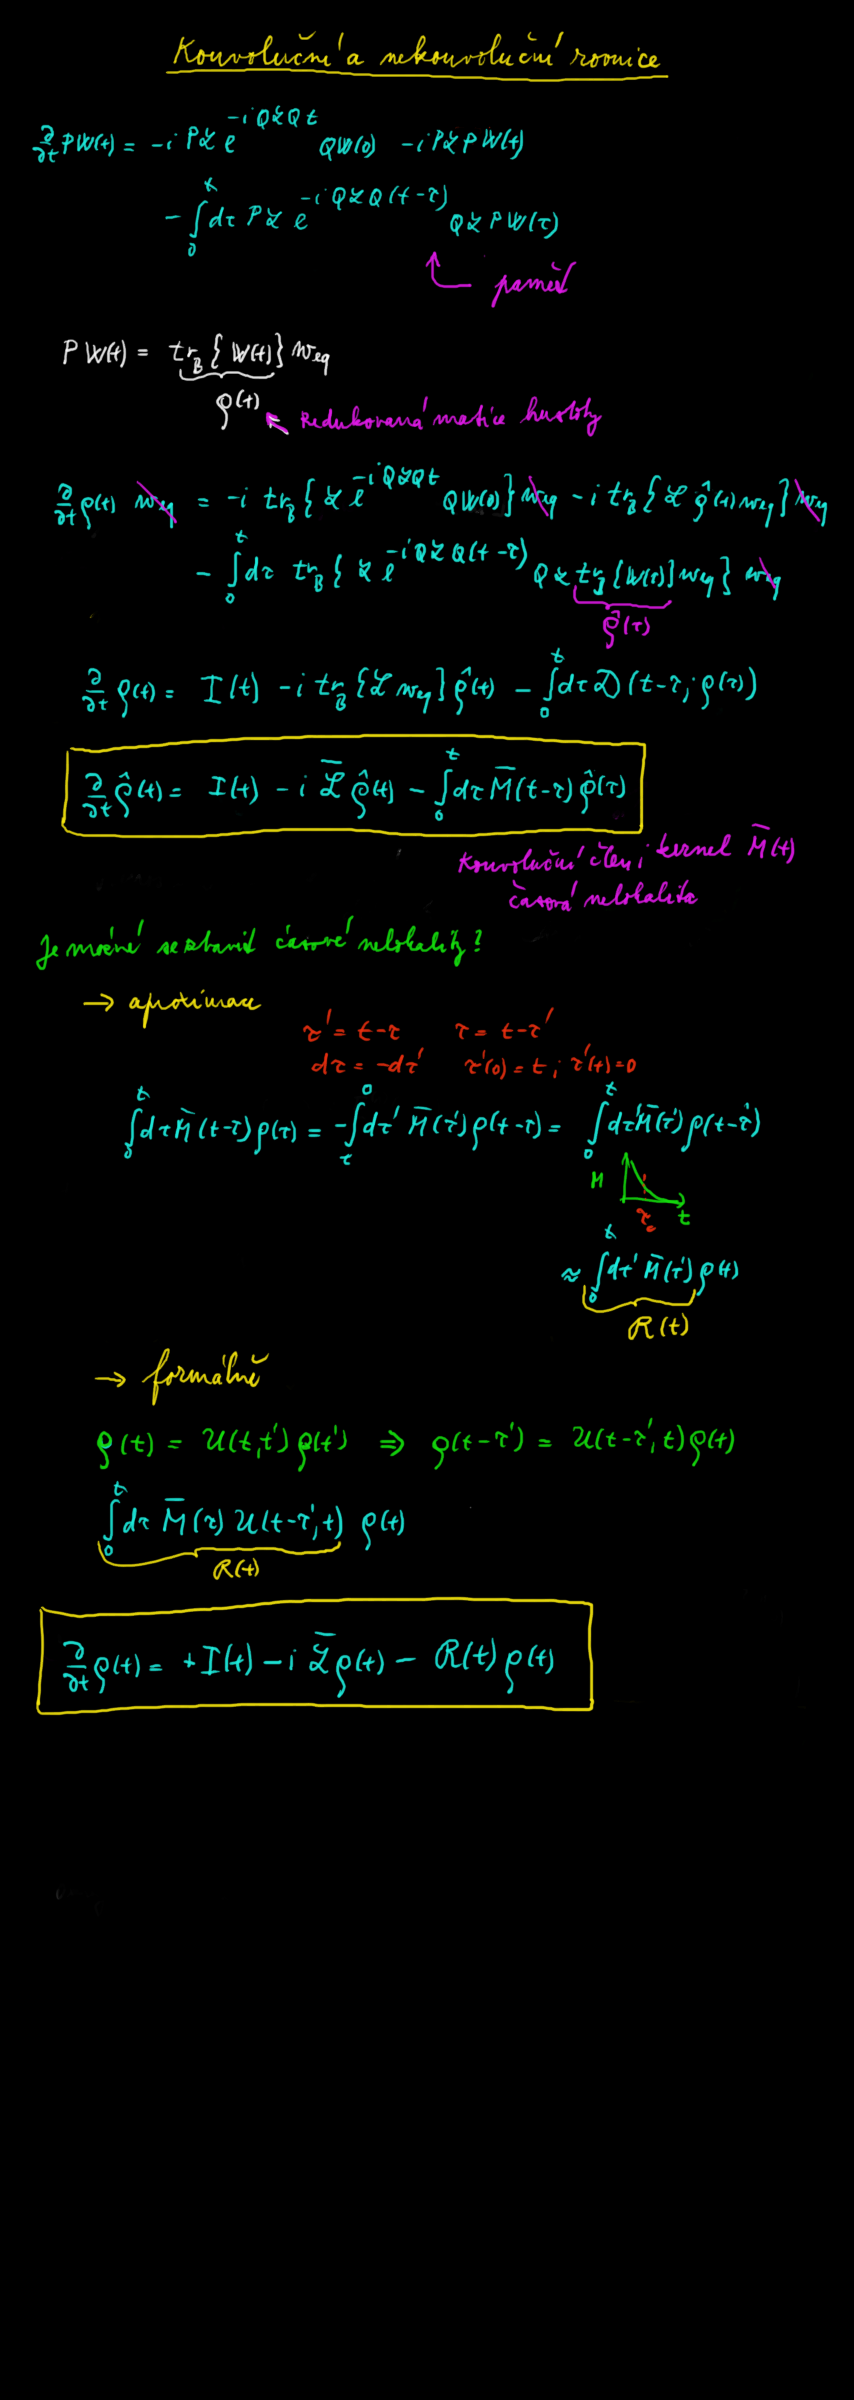 Konvoluční a nekonvoluční rovnice
∂/∂t PW(t) = -i Pℒ e^{-iQℒQt} QW(0) - iPℒPW(t)
- ∫₀ᵗ dτ Pℒ e^{-iQℒQ(t-τ)} QℒPW(τ)
paměť
PW(t) = tr_B{W(t)} w_eq
ρ(t)
Redukovaná matice hustoty
∂/∂t ρ(t) w_eq = -i tr_B{ℒ e^{-iQℒQt} QW(0)} w_eq - i tr_B{ℒ ρ̂(t) w_eq} w_eq
- ∫₀ᵗ dτ tr_B{ℒ e^{-iQℒQ(t-τ)} Qℒ tr_B{W(τ)} w_eq} w_eq
ρ̂(τ)
∂/∂t ρ(t) = I(t) - i tr_B{ℒ w_eq} ρ̂(t) - ∫₀ᵗ dτ 𝒟(t-τ; ρ(τ))
∂/∂t ρ̂(t) = I(t) - i ℒ̄ ρ̂(t) - ∫₀ᵗ dτ M̄(t-τ) ρ̂(τ)
Konvoluční člen, kernel M̄(t)
časová nelokalita
Je možné se zbavit časové nelokality?
→ aproximace
τ' = t-τ τ = t-τ'
dτ = -dτ' τ'(0) = t, τ'(t) = 0
∫₀ᵗ dτ M̄(t-τ) ρ(τ) = -∫ₜ⁰ dτ' M̄(τ') ρ(t-τ) = ∫₀ᵗ dτ' M̄(τ') ρ(t-τ')
M
τc t
≈ ∫₀ᵗ dτ' M̄(τ') ρ(t)
R(t)
→ formálně
ρ(t) = U(t,t') ρ(t') ⇒ ρ(t-τ') = U(t-τ',t) ρ(t)
∫₀ᵗ dτ M̄(τ) U(t-τ',t) ρ(t)
R(t)
∂/∂t ρ(t) = +I(t) - i ℒ̄ ρ(t) - R(t) ρ(t)